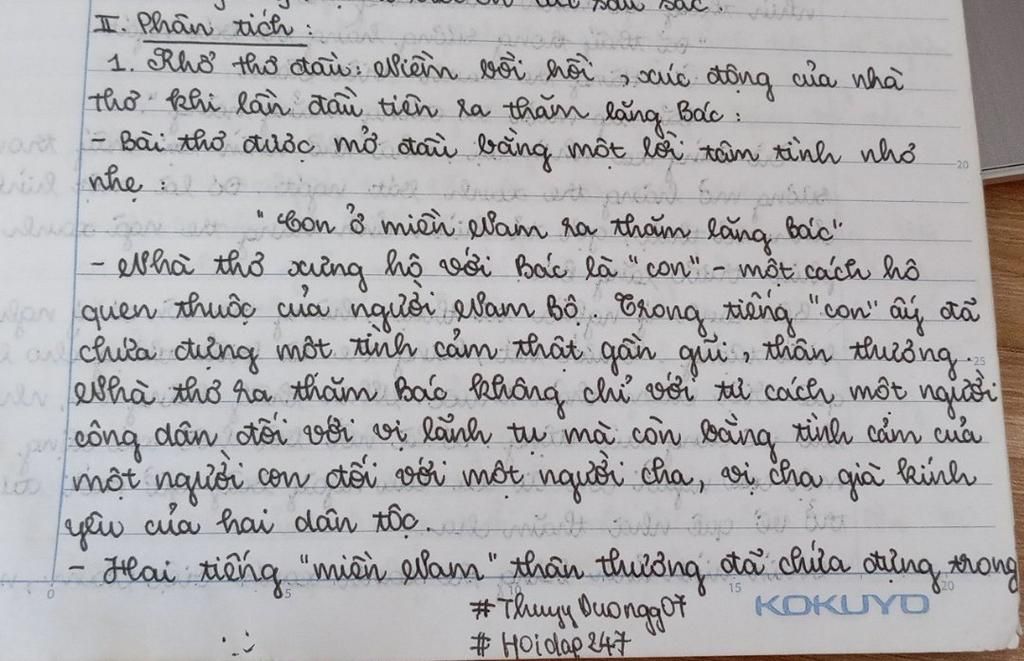 II. Phân tích :
1. Khổ thơ đầu: Niềm bồi hồi, xúc động của nhà
thơ khi lần đầu tiên ra thăm lăng Bác :
- Bài thơ được mở đầu bằng một lời tâm tình nhỏ
nhẹ :
20
"Con ở miền Nam ra thăm lăng Bác"
- Nhà thơ xưng hô với Bác là "con" - một cách hô
quen thuộc của người Nam Bộ. Trong tiếng "con" ấy đã
chứa đựng một tình cảm thật gần gũi, thân thương.
25
Nhà thơ ra thăm Bác không chỉ với tư cách một người
công dân đối với vị lãnh tụ mà còn bằng tình cảm của
một người con đối với một người cha, vị cha già kính
yêu của hai dân tộc.
- Hai tiếng "miền Nam" thân thương đã chứa đựng trong
0 5 10 15 20
KOKUYO
#ThuyyDuongg07
#Hoidap247